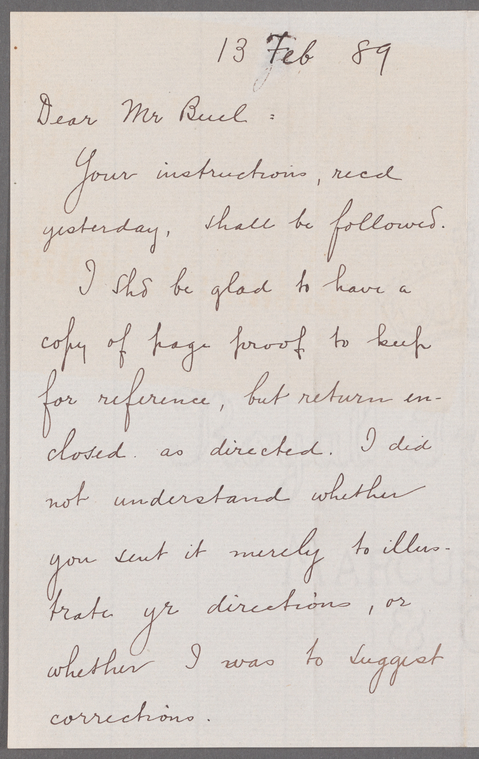 13 Feb 89
Dear Mr Buel :
Your instructions, recd
yesterday, shall be followed.
I shd be glad to have a
copy of page proof to keep
for reference, but return en-
closed as directed. I did
not understand whether
you sent it merely to illus-
trate yr directions, or
whether I was to suggest
corrections.